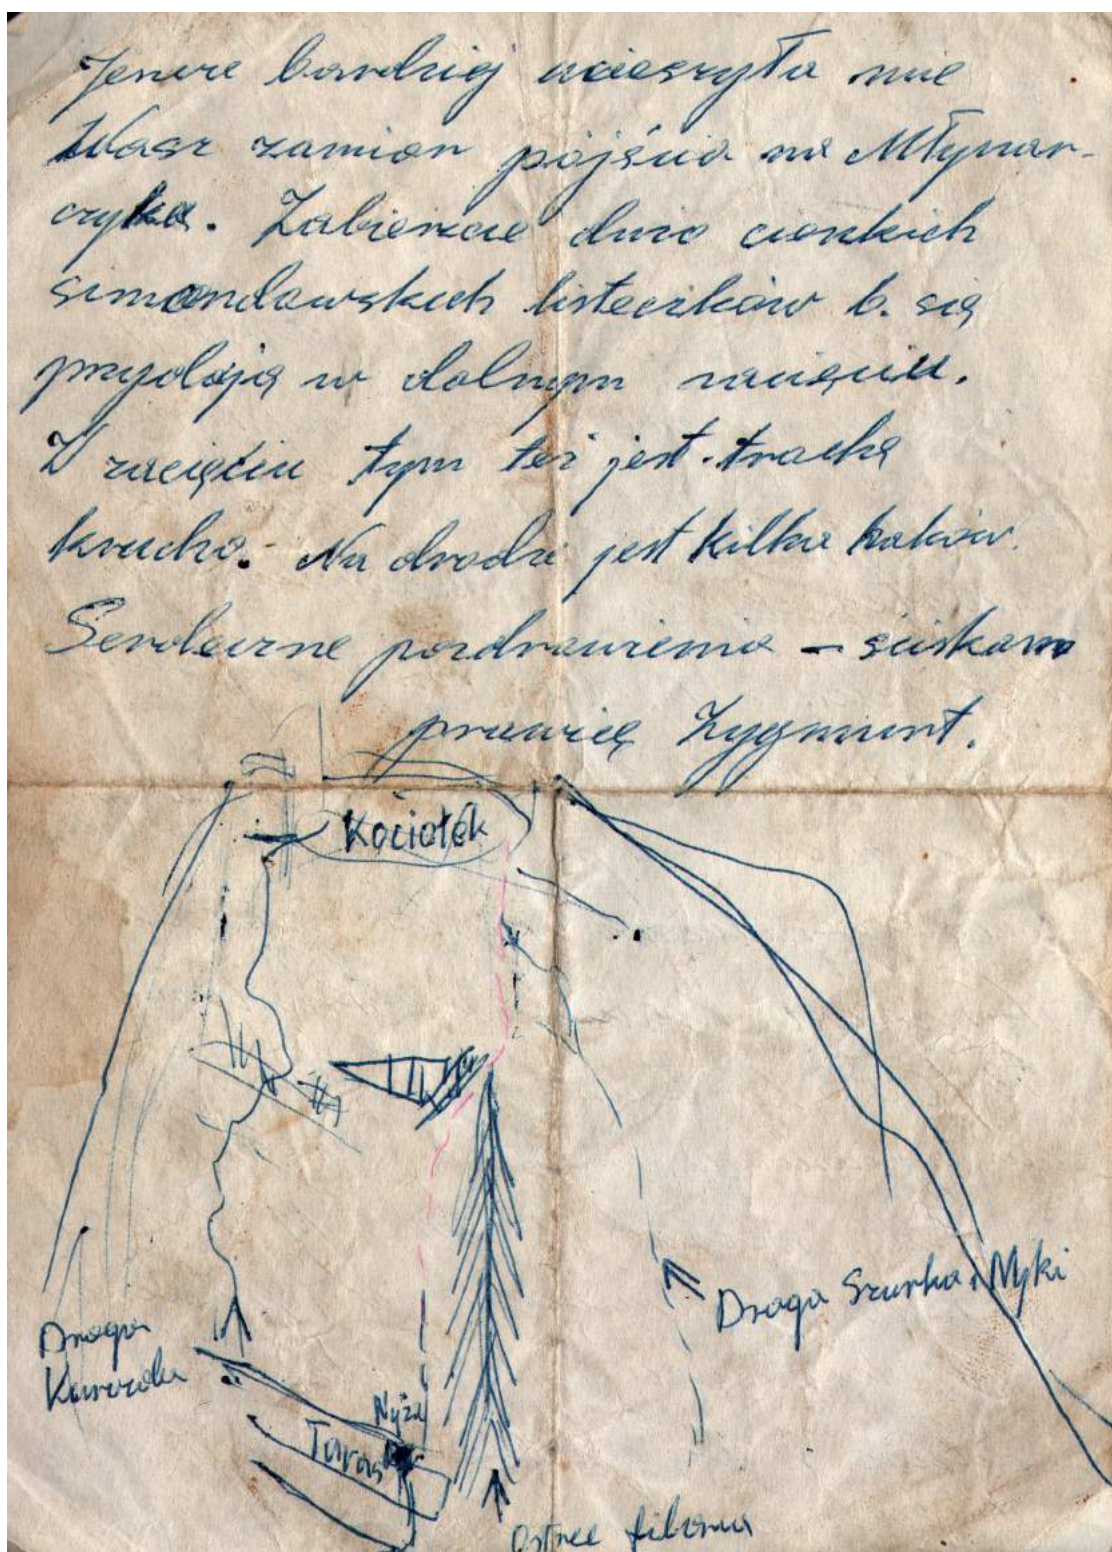 Jeszcze bardziej ucieszyła mnie
Wasz zamiar pójścia na Młynar-
czyka. Zabierzcie dużo cienkich
simondowskich listeczków b. się
przydają w dolnym zacięciu.
W zacięciu tym też jest trochę
krucho. Na drodze jest kilka haków.
Serdeczne pozdrowienia – ściskam
prawicę Zygmunt.
Kociołek
Droga Szurka i Nyki
Droga
Niżej
Taras
Ostrze filara